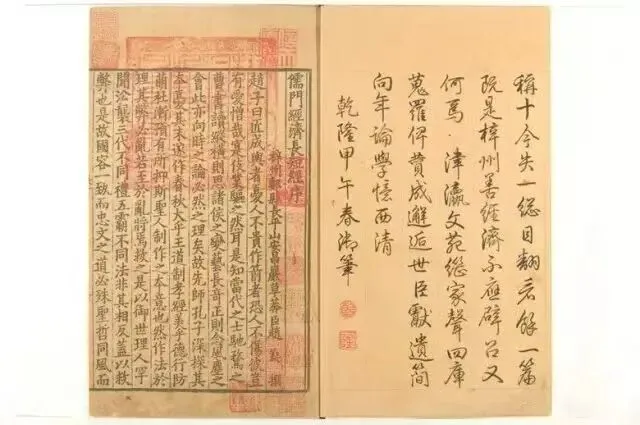 稱十今失一總目翻看餘一篇
既是梓州善經濟不應辟召又
何焉津瀛文苑繼家聲四庫
蒐羅俾費成邂逅世臣獻遺簡
向年論學憶西清
乾隆甲午春御筆
儒門經濟長短經序
梓州郪縣長平山安昌巖草莽臣趙蕤撰
趙子曰近成輿者憂人不貴作箭者恐人不傷彼豈
有愛憎哉寔伎業驅之然耳是知當代之士馳騖之
曹書讀縱橫則思諸侯之變藝長奇正則念風塵之
會此亦向時之論必然之理矣故先師孔子深探其
本憂其末遂作春秋大乎王道制孝經美乎德行防
萌杜漸預有所抑斯聖人制作之本意也然作法於
理其弊必亂若至於亂將焉救之是以御世理人罕
聞沿襲三代不同禮五霸不同法非其相反蓋以救
弊也是故國容一致而忠文之道必殊聖哲同風而